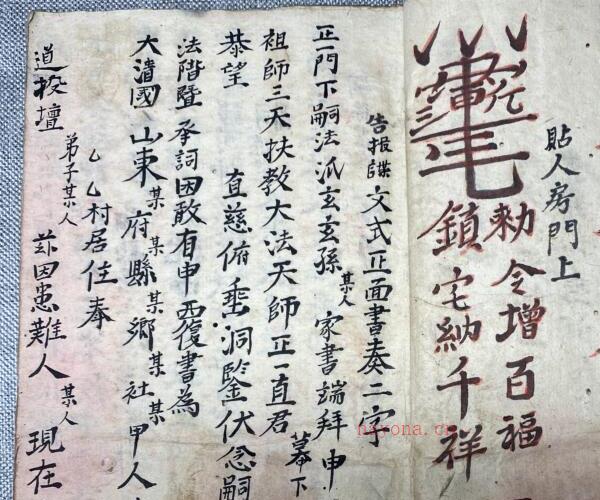 貼人房門上
勅令增百福
鎮宅納千祥
告报牒文式正面書奏二字
正一門下嗣法派玄玄孫某人家書端拜申
祖師三天扶教大法天師正一直君
恭望 直慈俯垂洞鑒伏念嗣
法階暨承詞因敢有申西復書為
大清國山東某府某縣某鄉某社某甲人
乙乙村居住奉
道投壇弟子某人茲因患難人某人現在